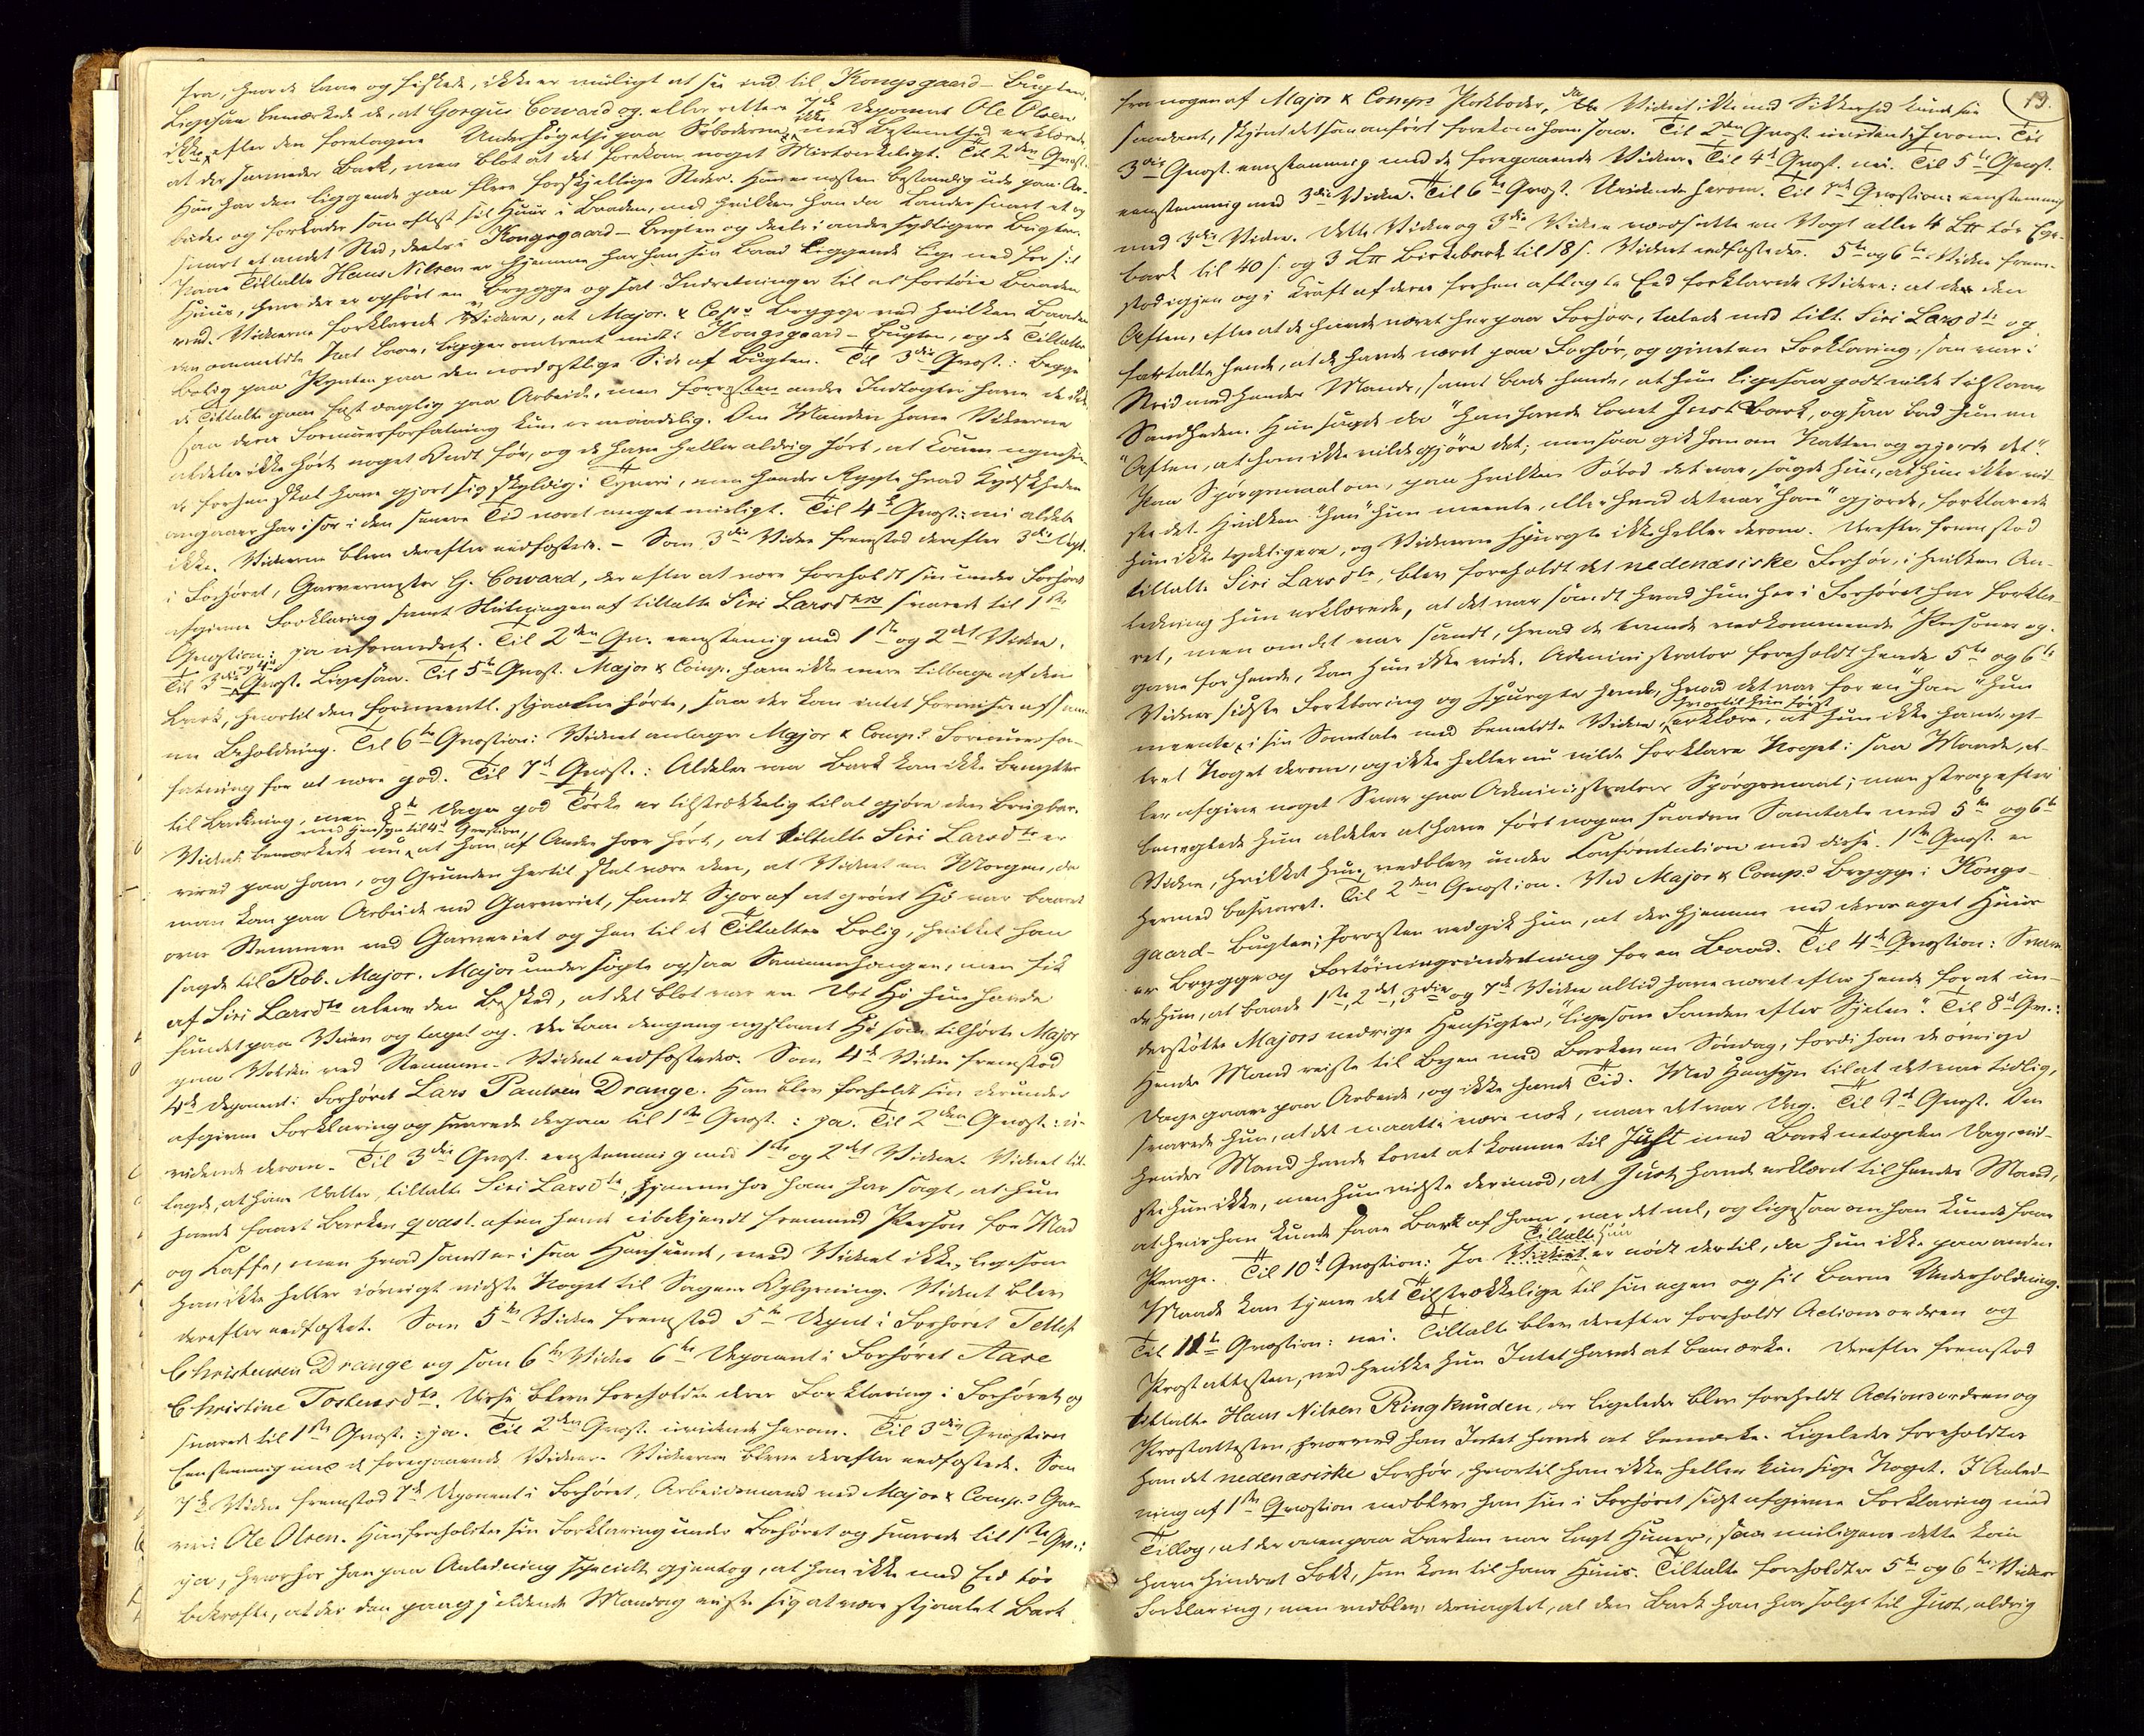 fra, hvor de laae og fiskede, ikke er muligt at see ind til Kongsgaard-Bugten.
Ligesaa bemærkede de, at Gorgus Coward og eller rettere 7de Deponent Ole Olsen
ikke efter den foretagne Undersøgelse paa Søboderne, ikke med Bestemthed erklærede,
at der savnedes Bark, men blot at det forekom noget Mistænkeligt. Til 2den Qvæst.
Han har den liggende paa flere forskjellige Steder. Han er næsten bestandig ude paa Ar-
beide og forlader som oftest sit Huus i Baaden, med hvilken han da lander snart et og
snart et andet Sted, deels i Kongsgaard-Bugten og deels i andre sydligere Bugter.
Naar Tiltalte Hans Nilsen er hjemme har han sin Baad liggende lige ned for sit
Huus, hvor der er opført en Brygge og sat Indretninger til at fortøie Baaden
ved. Vidnerne forklarede Videre, at Major & Cos Brygge ved hvilken Baaden
den ommeldte Nat laae, ligger omtrent midt i Kongsgaard-Bugten, og de Tiltaltes
Bolig paa Pynten paa den nordostlige Side af Bugten. Til 3die Qvæst.: Begge
de Tiltalte gaae fast daglig paa Arbeide, men forresten andre Indtægter have de ikke
saa deres Formuesforfatning kun er maadelig. Om Manden have Vidnerne
aldeles ikke hørt noget Ondt før, og de have heller aldrig hørt, at Konen
forhen skal have gjort sig skyldig i Tyveri, men hendes Rygte hvad Kydskheden
angaaer har især i den senere Tid været meget misligt. Til 4de Qvæst.: nei aldeles
ikke. Vidnerne bleve derefter vedfæstede. – Som 3die Vidne fremstod derefter 3die Dept.
i Forhøret, Garvermester G. Coward, der efter at være foreholdt sin under Forhøret
afgivne Forklaring samt Slutningen af tiltalte Siri Larsdtrs svarede til 1ste
Qvæstion: ja uforandret. Til 2den Qv. eenstemmig med 1ste og 2det Vidne.
Til 3die og 4de Qvæst. Ligesaa. Til 5te Qvæst. Major & Comp. have ikke mere tilbage af den
Bark, hvortil den formeentl. stjaalne hørte, saa der kan intet formeenes af sam-
me Beholdning. Til 6te Qvæstion: Vidnet antager Major & Comps Formuesfor-
fatning for at være god. Til 7de Qvæst.: Aldeles raa Bark kan ikke benyttes
til Barkning, men 8te Dages god Tørke er tilstrækkelig til at gjøre den brugbar.
Vidnet bemærkede nu, med Hensyn til 4de Qvæstion, at han af Andre har hørt, at tiltalte Siri Larsdtr er
vred paa ham, og Grunden hertil skal være den, at Vidnet en Morgen, da
man kom paa Arbeide ved Garveriet, fandt Spor af at grønt Hø var baaret
over Stemmen ved Garveriet og hen til de Tiltaltes Bolig, hvilket han
sagde til Rob. Major. Major undersøgte ogsaa Sammenhængen, men fik
af Siri Larsdtr alene den Besked, at det blot var en Dot Hø hun havde
fundet paa Veien og taget op. Der laae dengang nyslaaet Hø som tilhørte Major
paa Volden ved Stemmen. Vidnet vedfæstedes. Som 4de Vidne fremstod
4de Deponent i Forhøret Lars Paulsen Drange. Han blev foreholdt sin derunder
afgivne Forklaring og svarede derpaa til 1ste Qvæst.: ja. Til 2den Qvæst.: u-
vidende derom. Til 3die Qvæst. eenstemmig med 1ste og 2det Vidne. Vidnet til-
lagde, at hans Datter, tiltalte Siri Larsdtr, hjemme hos ham har sagt, at hun
havde faaet Barken qvæst. af en hende ubekjendt fremmed Person for Mad
og Kaffe, men hvad sandt er i saa Henseende, veed Vidnet ikke, ligesom
han ikke heller iøvrigt vidste Noget til Sagens Oplysning. Vidnet blev
derefter vedfæstet. Som 5te Vidne fremstod 5te Depnt i Forhøret Tellef
Christensen Drange og som 6te Vidne 6te Deponent i Forhøret Aase
Christine Tostensdtr. Disse bleve foreholdte deres Forklaring i Forhøret og
svarede til 1ste Qvæst.: ja. Til 2den Qvæst. uvidende herom. Til 3die Qvæstion
Eenstemmig med de foregaaende Vidner. Vidnerne bleve derefter vedfæstede. Som
7de Vidne fremstod 7de Deponent i Forhøret, Arbeidsmand ved Major & Comps Gar-
veri Ole Olsen. Han foreholdtes sin Forklaring under Forhøret og svarede til 1ste Qv.:
ja, hvorhos han paa Anledning specielt gjentog, at han ikke med Eed tør
bekræfte, at der den paagjeldende Mandag viste sig at være stjaalet Bark
13.
fra nogen af Major & Comps Barkboder, da Vidnet ikke med Sikkerhed kunde see
saadant, skjønt det som anført forekom ham saa. Til 2den Qvæst. uvidende herom. Til
3die Qvæst. eenstemmig med de foregaaende Vidner. Til 4de Qvæst. nei. Til 5te Qvæst.
eenstemmig med 3die Vidne. Til 6te Qvæst. Uvidende herom. Til 7de Qvæstion: eenstemmig
med 3die Vidne. Dette Vidne og 3die Vidne værdsatte en Vogt eller 4 L# tør Ege-
bark til 40 s. og 3 L# Birkebark til 18 s. Vidnet vedfæstedes. 5te og 6te Vidne frem-
stod igjen og i Kraft af deres forhen aflagte Eed forklarede Videre: at de den
Aften, efter at de havde været her paa Forhør, talede med tilt. Siri Larsdtr og
fortalte hende, at de havde været paa Forhør, og givet en Forklaring, som var i
Strid med hendes Mands, samt bade hende, at hun ligesaa godt vilde tilstaae
Sandheden. Hun sagde da "han havde lovet Just Bark, og saa bad hun en
"Aften, at han ikke vilde gjøre det; men saa gik han om Natten og gjorde det".
Paa Spørgsmaal om, paa hvilken Søbod det var, sagde hun, at hun ikke vid-
ste det. Hvilken "han" hun meente, eller hvad det var "han" gjorde, forklarede
hun ikke tydeligere, og Vidnerne spurgte ikke heller derom. Derefter fremstod
tiltalte Siri Larsdtr, blev foreholdt det nedenæsiske Forhør, i hvilken An-
ledning hun erklærede, at det var sandt hvad hun her i Forhøret har forkla-
ret, men om det var sandt, hvad de vedkommende Personer op-
gave for hende, kan hun ikke vide. Administrator foreholdt hende 5te og 6te
Vidnes sidste Forklaring og spurgte hende, hvad det var for en "han" hun
meente i sin Samtale med bemeldte Vidner, hvortil hun først erklærede, at hun ikke havde yt-
tret Noget derom, og ikke heller nu vilde forklare Noget i saa Maade, el-
ler afgive noget Svar paa Administrators Spørgsmaal; men strax efter
benegtede hun aldeles at have ført nogen saadan Samtale med 5te og 6te
Vidne, hvilket hun vedblev under Confrontation med disse. 1ste Qvæst. er
hermed besvaret. Til 2den Qvæstion. Ved Major & Comps Brygge i Kongs-
gaard-Bugten; forresten vedgik hun, at der hjemme ved deres eget Huus
er Brygge og Fortøiningsindretning for en Baad. Til 4de Qvæstion: Svare-
de hun, at baade 1ste, 2det, 3die og 7de Vidne altid have været efter hende for at un-
derstøtte Majors nedrige Hensigter, "ligesom Fanden efter Sjelen". Til 8de Qv.:
Hendes Mand reiste til Byen med Barken en Søndag, fordi han de øvrige
Dage gaaer paa Arbeide, og ikke havde Tid. Med Hensyn til at det var tidlig,
svarede hun, at det maatte være nok, naar det var Dag. Til 9de Qvæst. Om
hendes Mand havde lovet at komme til Just med Bark netop den Dag, vid-
ste hun ikke, men hun vidste derimod, at Just havde erklæret til hendes Mand,
at hvis han kunde faae Bark af ham, var det vel, og ligesaa om han kunde faae
Penge. Til 10de Qvæstion: Ja Vidnet Tiltalte hun er nødt dertil, da hun ikke paa anden
Maade kan tjene det Tilstrækkelige til sin egen og sit Barns Underholdning.
Til 11te Qvæstion: nei. Tiltalte blev derefter foreholdt Actionsordren og
Præstattesten, ved hvilke hun Intet havde at bemærke. Derefter fremstod
tiltalte Hans Nilsen Ringknuden, der ligeledes blev foreholdt Actionsordren og
Præstattesten, hvorved han Intet havde at bemærke. Ligeledes foreholdtes
han det nedenæsiske Forhør, hvortil han ikke heller kunde sige Noget. I Anled-
ning af 1ste Qvæstion vedblev han sin i Forhøret sidst afgivne Forklaring med
Tillæg, at der ovenpaa Barken var lagt Huuer, saa muligens dette kan
have hindret Folk, som kom til hans Huus. Tiltalte foreholdtes 5te og 6te Vidnes
Forklaring, men vedblev desuagtet, at den Bark han har solgt til Just, aldrig